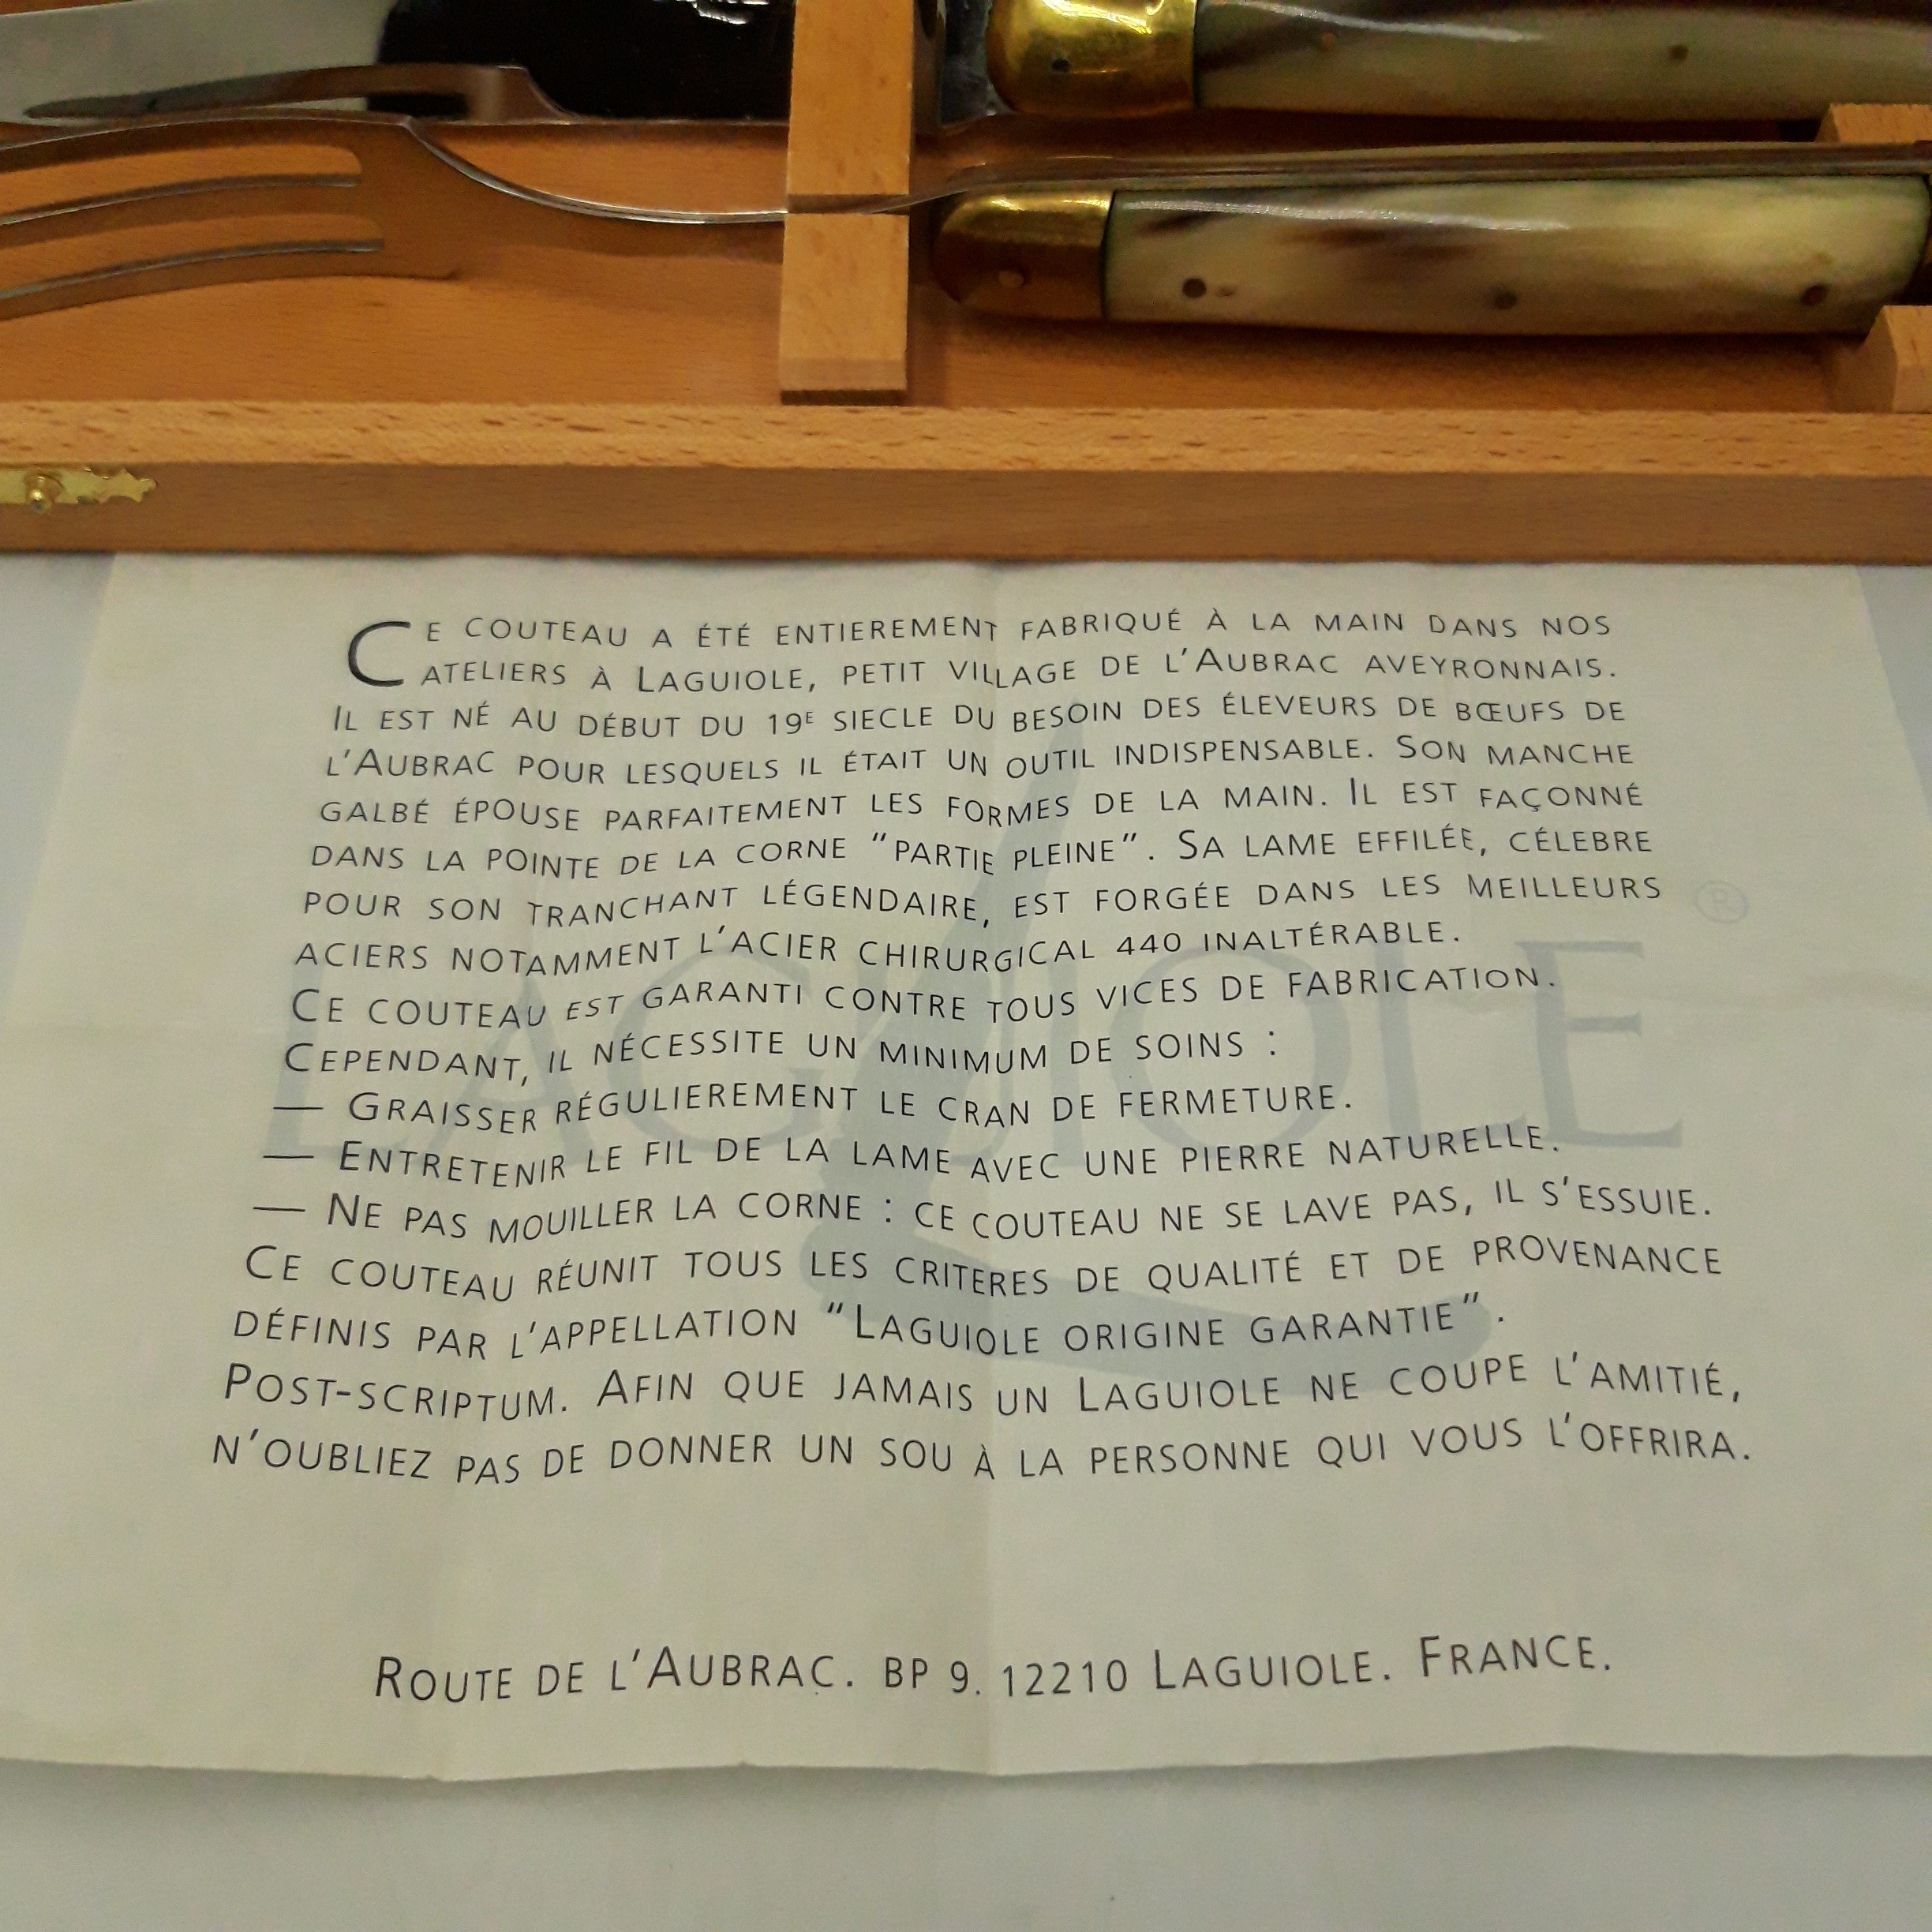 CE COUTEAU A ÉTÉ ENTIEREMENT FABRIQUÉ À LA MAIN DANS NOS
ATELIERS À LAGUIOLE, PETIT VILLAGE DE L'AUBRAC AVEYRONNAIS.
IL EST NÉ AU DÉBUT DU 19E SIECLE DU BESOIN DES ÉLEVEURS DE BŒUFS DE
L'AUBRAC POUR LESQUELS IL ÉTAIT UN OUTIL INDISPENSABLE. SON MANCHE
GALBÉ ÉPOUSE PARFAITEMENT LES FORMES DE LA MAIN. IL EST FAÇONNÉ
DANS LA POINTE DE LA CORNE "PARTIE PLEINE". SA LAME EFFILÉE, CÉLEBRE
POUR SON TRANCHANT LÉGENDAIRE, EST FORGÉE DANS LES MEILLEURS
ACIERS NOTAMMENT L'ACIER CHIRURGICAL 440 INALTÉRABLE.
CE COUTEAU EST GARANTI CONTRE TOUS VICES DE FABRICATION.
CEPENDANT, IL NÉCESSITE UN MINIMUM DE SOINS :
— GRAISSER RÉGULIEREMENT LE CRAN DE FERMETURE.
— ENTRETENIR LE FIL DE LA LAME AVEC UNE PIERRE NATURELLE.
— NE PAS MOUILLER LA CORNE : CE COUTEAU NE SE LAVE PAS, IL S'ESSUIE.
CE COUTEAU RÉUNIT TOUS LES CRITERES DE QUALITÉ ET DE PROVENANCE
DÉFINIS PAR L'APPELLATION "LAGUIOLE ORIGINE GARANTIE".
POST-SCRIPTUM. AFIN QUE JAMAIS UN LAGUIOLE NE COUPE L'AMITIÉ,
N'OUBLIEZ PAS DE DONNER UN SOU À LA PERSONNE QUI VOUS L'OFFRIRA.
LAGUIOLE ®
ROUTE DE L'AUBRAC. BP 9. 12210 LAGUIOLE. FRANCE.